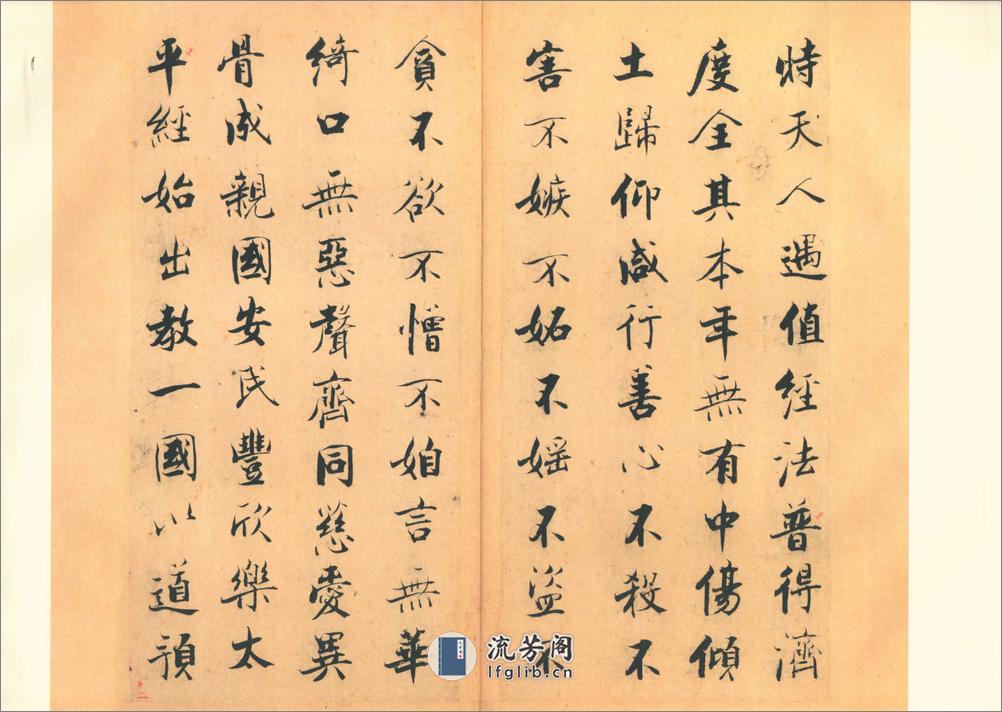 時天人遇值經法普得濟
度全其本年無有中傷傾
土歸仰咸行善心不殺不
害不嫉不妬不婬不盜不
貪不欲不憎不㚰言無華
綺口無惡聲齊同慈愛異
骨成親國安民豐欣樂太
平經始出教一國以道預
流芳阁
lfglib.cn